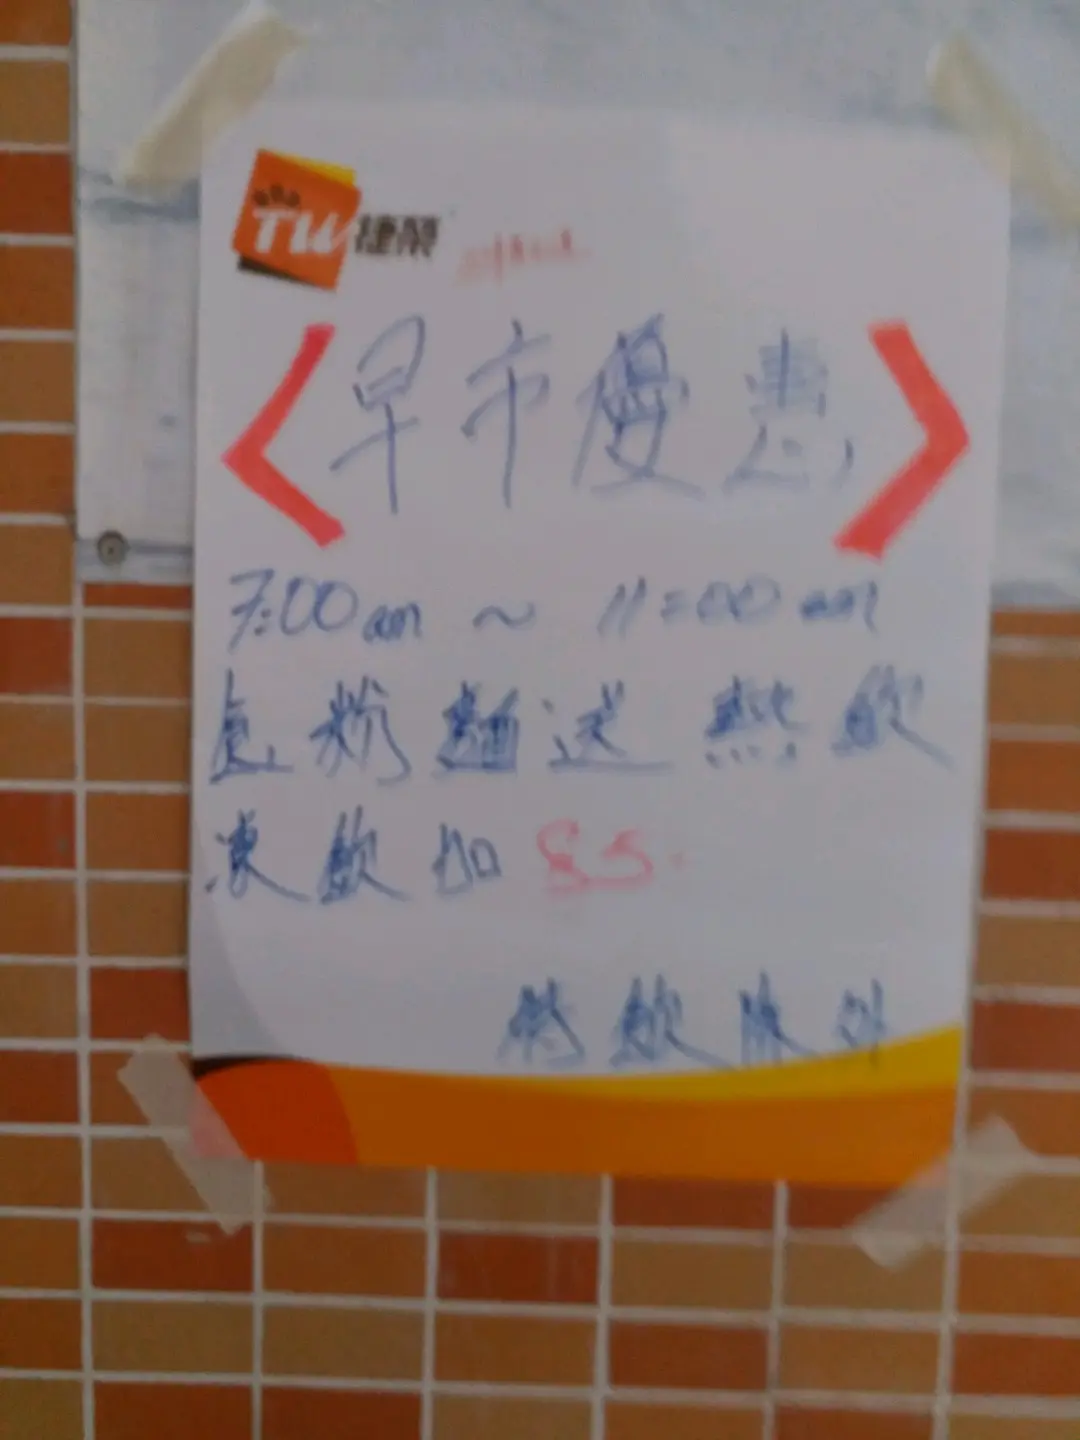 TU 捷榮
早市優惠
7:00am ~ 11:00am
粉麵送 熱飲
凍飲加 $5.
特飲除外